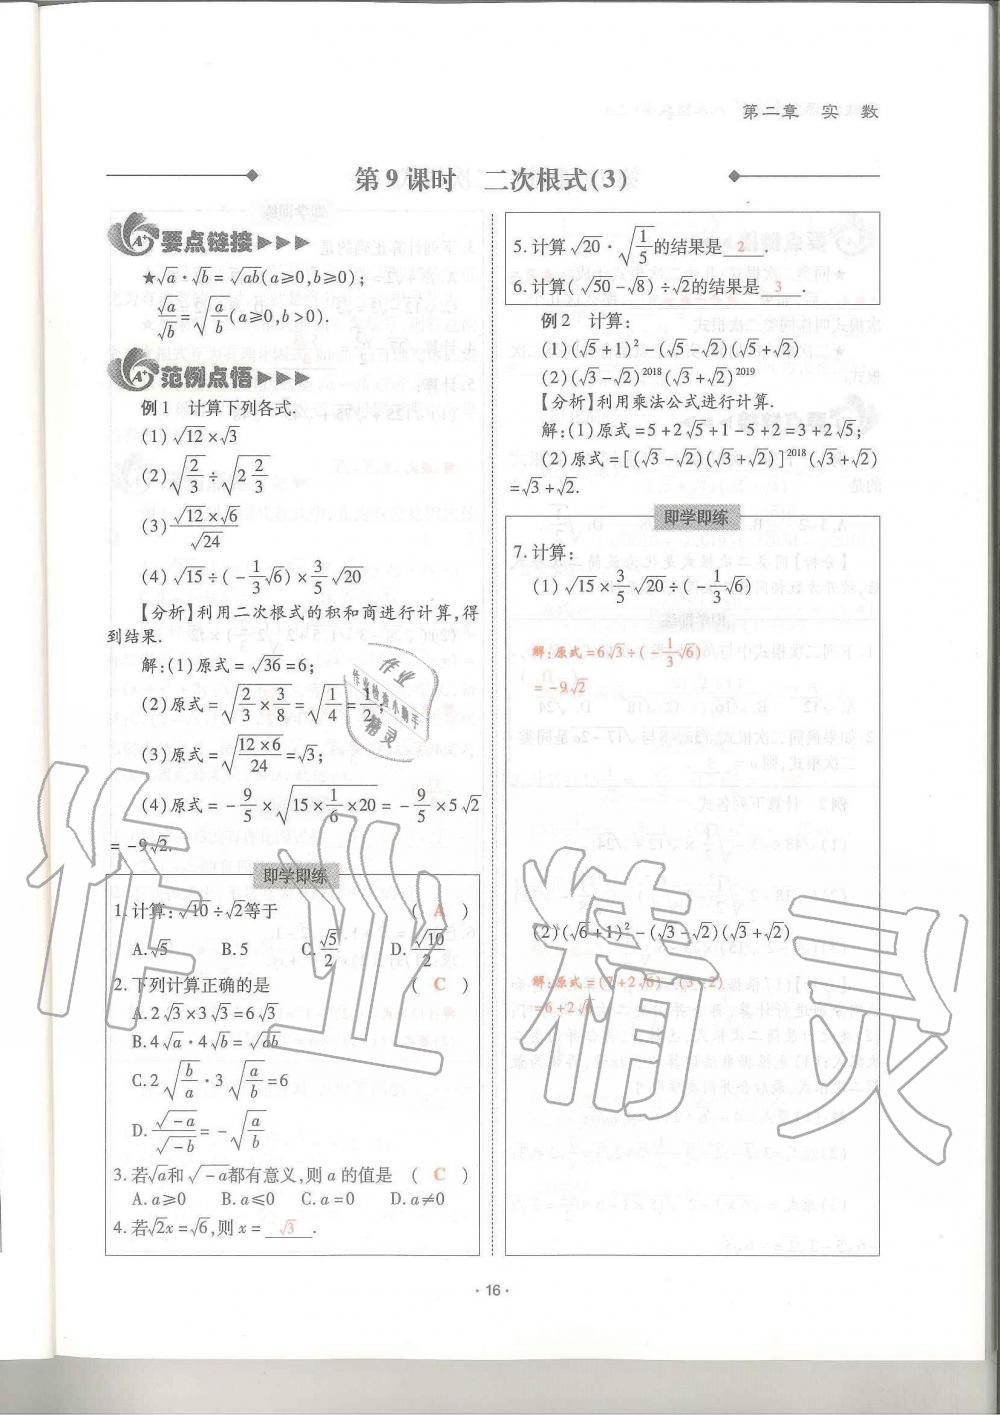 第二章 实 数
第9课时 二次根式(3)
要点链接
★√a·√b=√ab(a≥0,b≥0);
√a/√b=√(a/b)(a≥0,b>0).
范例点悟
例1 计算下列各式.
(1)√12×√3
(2)√(2/3)÷√(2 2/3)
(3)(√12×√6)/√24
(4)√15÷(-1/3√6)×3/5√20
【分析】利用二次根式的积和商进行计算,得
到结果.
解:(1)原式=√36=6;
(2)原式=√(2/3×3/8)=√(1/4)=1/2;
(3)原式=√((12×6)/24)=√3;
(4)原式=-9/5×√(15×1/6×20)=-9/5×5√2
=-9√2.
即学即练
1.计算:√10÷√2等于 ( A )
A.√5 B.5 C.√5/2 D.√10/2
2.下列计算正确的是 ( C )
A.2√3×3√3=6√3
B.4√a·4√b=√ab
C.2√(b/a)·3√(a/b)=6
D.√-a/√-b=-√(a/b)
3.若√a和√-a都有意义,则a的值是 ( C )
A.a≥0 B.a≤0 C.a=0 D.a≠0
4.若√2x=√6,则x=√3.
5.计算√20·√(1/5)的结果是 2 .
6.计算(√50-√8)÷√2的结果是 3 .
例2 计算:
(1)(√5+1)²-(√5-√2)(√5+√2)
(2)(√3-√2)²⁰¹⁸(√3+√2)²⁰¹⁹
【分析】利用乘法公式进行计算.
解:(1)原式=5+2√5+1-5+2=3+2√5;
(2)原式=[(√3-√2)(√3+√2)]²⁰¹⁸(√3+√2)
=√3+√2.
即学即练
7.计算:
(1)√15×3/5√20÷(-1/3√6)
解:原式=6√3÷(-1/3√6)
=-9√2
(2)(√6+1)²-(√3-√2)(√3+√2)
解:原式=(7+2√6)-(3-2)
=6+2√6
·16·
作业
作业检查小助手
精灵
作业精灵